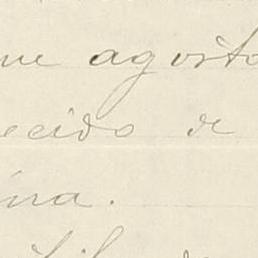 ue agosto
ecido de
ina.